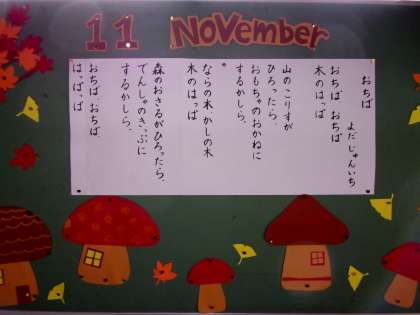 11 November
おちば
よだじゅんいち
おちば おちば
木のはっぱ
山のこりすが
ひろったら、
おもちゃのおかねに
するかしら、
ならの木 かしの木
木のはっぱ
森のおさるがひろったら、
でんしゃのきっぷに
するかしら、
おちば、おちば、
はっぱっぱ